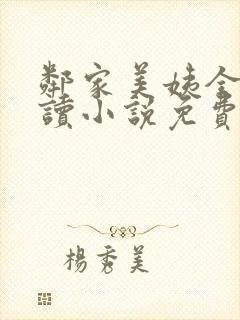 鄰家美姨全
讀小說免費
楊秀美